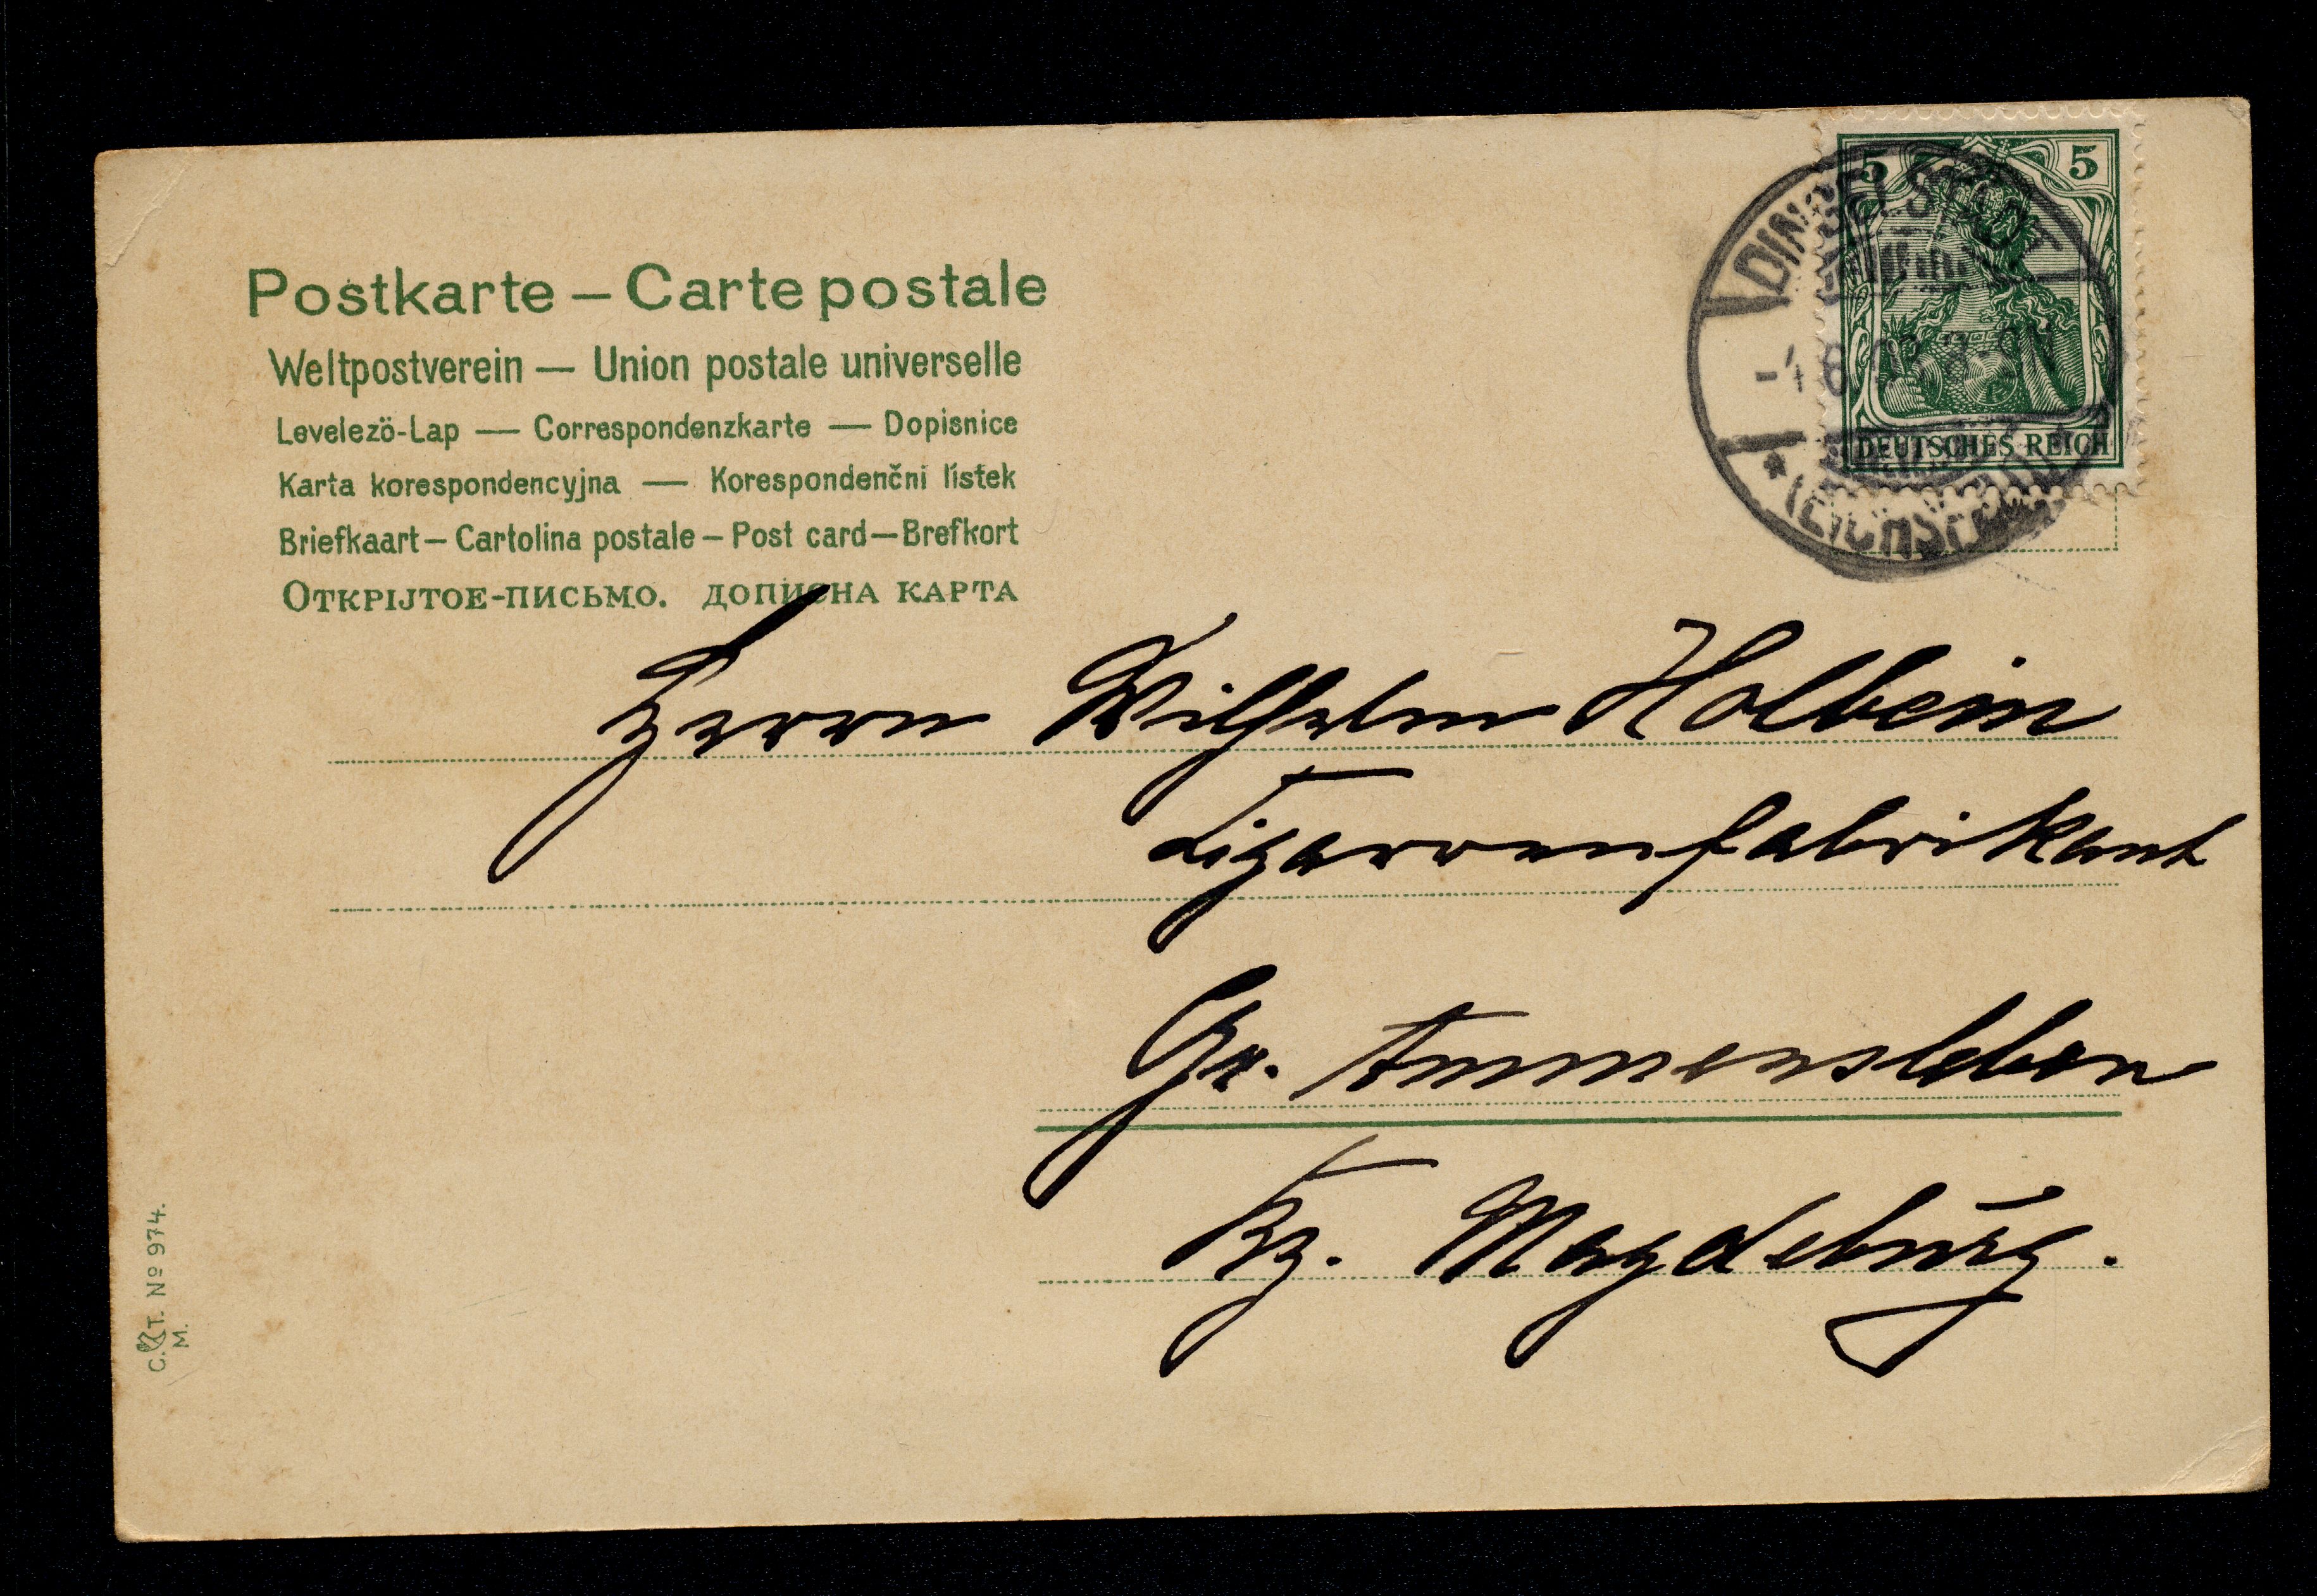 Postkarte – Carte postale
Weltpostverein — Union postale universelle
Levelezö-Lap — Correspondenzkarte — Dopisnice
Karta korespondencyjna — Korespondenčni lístek
Briefkaart – Cartolina postale – Post card – Brefkort
Откріјтое-письмо. дописна карта
5 5
DEUTSCHES REICH
Herrn Wilhelm Holbein
Zigarrenfabrikant
Gr. Ammensleben
Bz. Magdeburg.
C. T. Nº 974.
M.